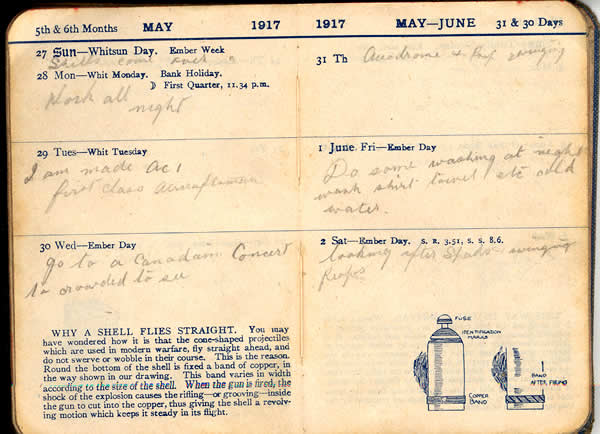 5th & 6th Months MAY 1917
27 Sun—Whitsun Day. Ember Week
Shells come over
28 Mon—Whit Monday. Bank Holiday.
☽ First Quarter, 11.34 p.m.
Work all
night
29 Tues—Whit Tuesday
I am made Ac1
first class aircraftsman
30 Wed—Ember Day
go to a Canadain Concert
to crowded to see
WHY A SHELL FLIES STRAIGHT. You may
have wondered how it is that the cone-shaped projectiles
which are used in modern warfare, fly straight ahead, and
do not swerve or wobble in their course. This is the reason.
Round the bottom of the shell is fixed a band of copper, in
the way shown in our drawing. This band varies in width
according to the size of the shell. When the gun is fired, the
shock of the explosion causes the rifling—or grooving—inside
the gun to cut into the copper, thus giving the shell a revolv-
ing motion which keeps it steady in its flight.
1917 MAY—JUNE 31 & 30 Days
31 Th Aerodrome swinging
1 June. Fri—Ember Day
Do some washing at night
wash shirt towel etc cold
water.
2 Sat—Ember Day. S. R. 3.51, S. S. 8.6.
looking after swinging
FUSE
IDENTIFICATION
MARKS
COPPER
BAND
BAND
AFTER FIRING